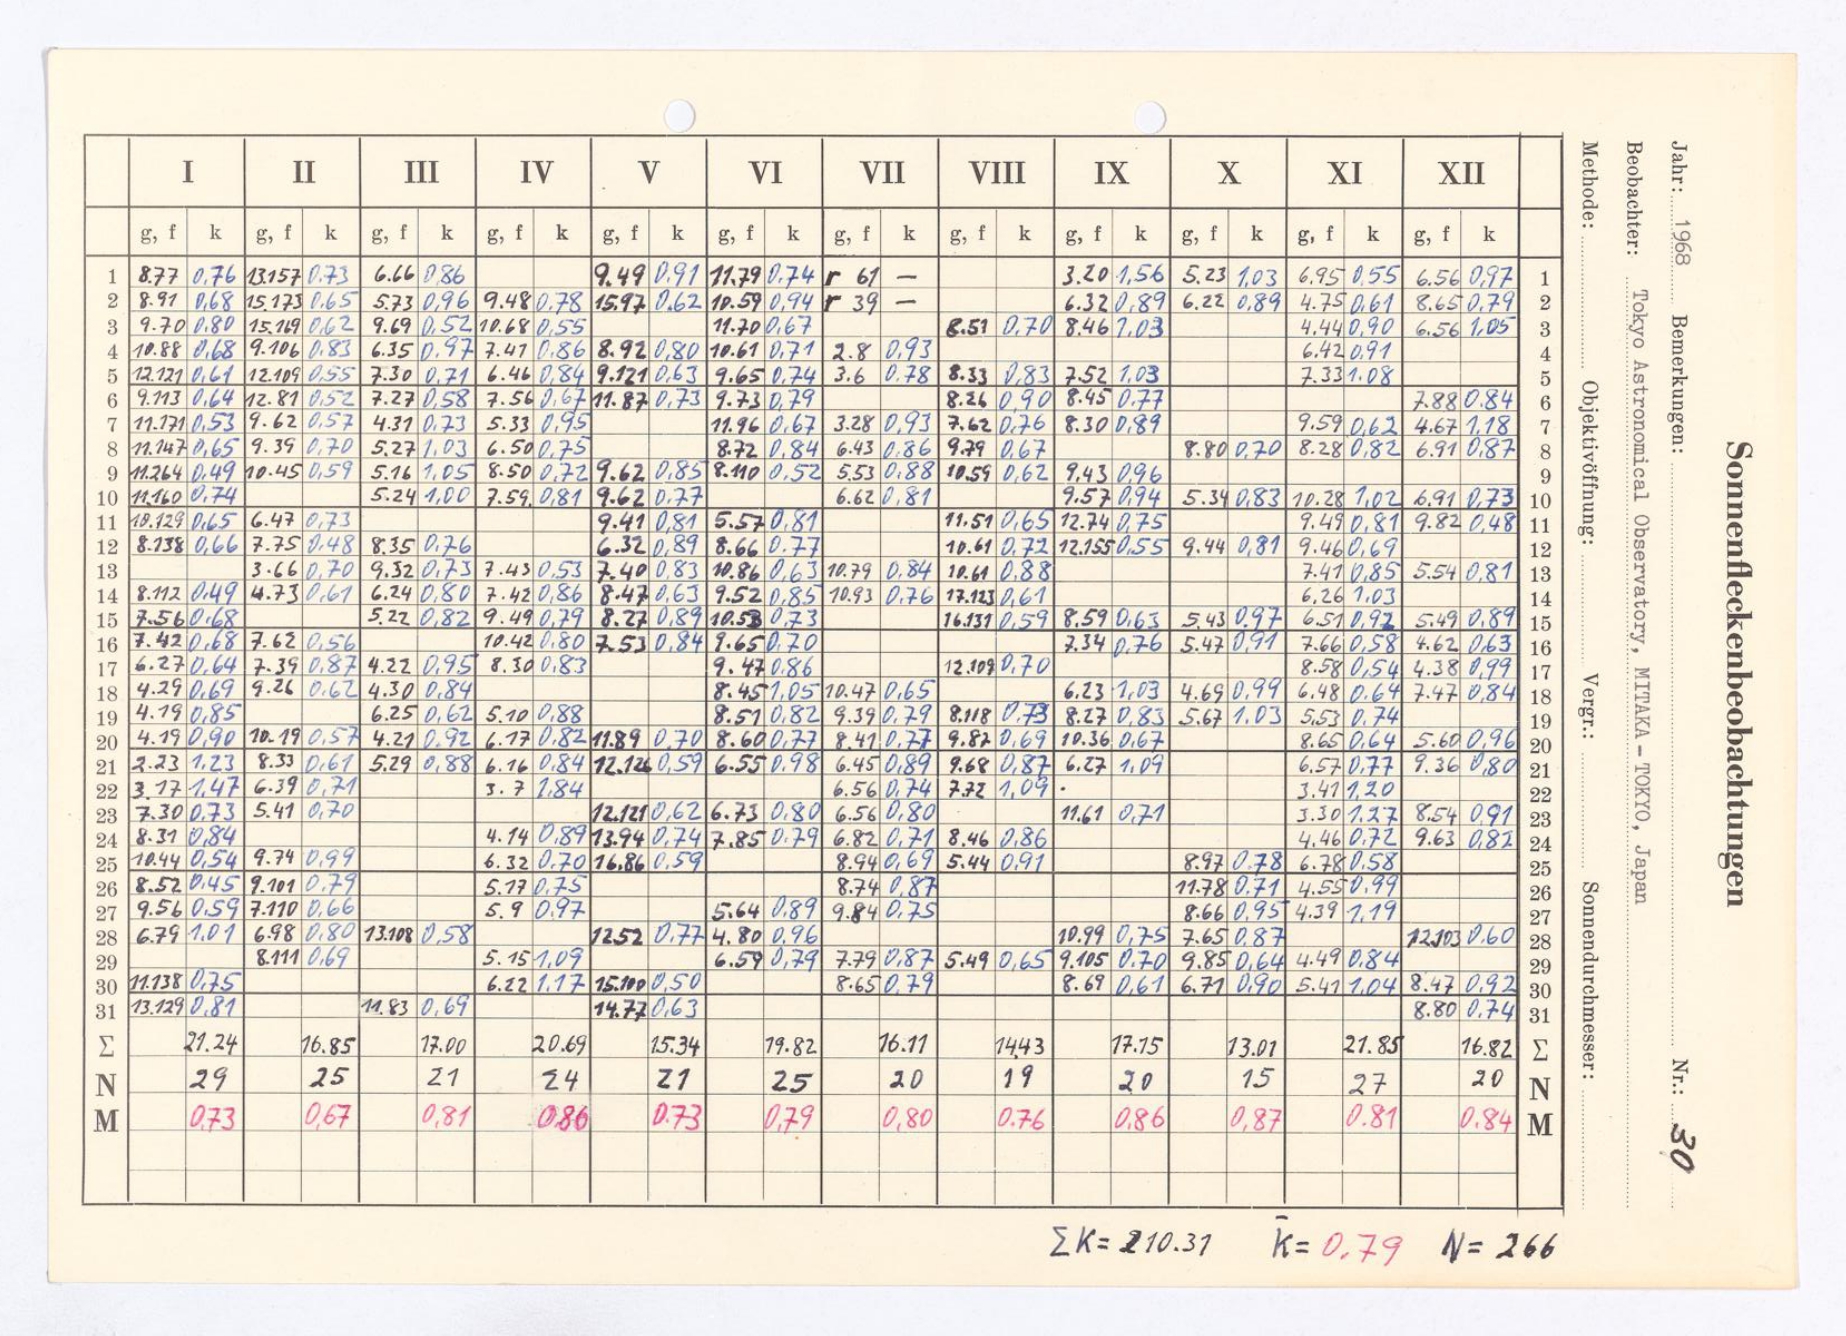 Sonnenfleckenbeobachtungen
Jahr: 1968 Bemerkungen: Nr.: 30
Beobachter: Tokyo Astronomical Observatory, MITAKA - TOKYO, Japan
Methode: Objektivöffnung: Vergr.: Sonnendurchmesser:
I II III IV V VI VII VIII IX X XI XII
g, f k g, f k g, f k g, f k g, f k g, f k g, f k g, f k g, f k g, f k g, f k g, f k
1 8.77 0,76 13.157 0.73 6.66 0,86 9.49 0,91 11.79 0.74 r 61 — 3.20 1,56 5.23 1,03 6.95 0.55 6.56 0,97 1
2 8.91 0,68 15.173 0.65 5.73 0,96 9.48 0,78 15.97 0.62 10.59 0,94 r 39 — 6.32 0,89 6.22 0,89 4.75 0,61 8.65 0,79 2
3 9.70 0,80 15.169 0,62 9.69 0,52 10.68 0,55 11.70 0,67 8.51 0,70 8.46 1,03 4.44 0,90 6.56 1,05 3
4 10.88 0,68 9.106 0,83 6.35 0,97 7.41 0,86 8.92 0,80 10.61 0,71 2.8 0,93 6.42 0,91 4
5 12.121 0,61 12.109 0,55 7.30 0,71 6.46 0,84 9.121 0,63 9.65 0,74 3.6 0,78 8.33 0,83 7.52 1,03 7.33 1.08 5
6 9.113 0,64 12.81 0,52 7.27 0,58 7.56 0,67 11.87 0,73 9.73 0,79 8.26 0,90 8.45 0,77 7.88 0.84 6
7 11.171 0,53 9.62 0,57 4.31 0,73 5.33 0,95 11.96 0,67 3.28 0,93 7.62 0,76 8.30 0,89 9.59 0,62 4.67 1,18 7
8 11.147 0,65 9.39 0,70 5.27 1,03 6.50 0,75 8.72 0,84 6.43 0,86 9.79 0,67 8.80 0,70 8.28 0,82 6.91 0,87 8
9 11.264 0,49 10.45 0,59 5.16 1,05 8.50 0,72 9.62 0,85 8.110 0,52 5.53 0,88 10.59 0,62 9.43 0,96 9
10 11.160 0,74 5.24 1,00 7.59 0,81 9.62 0,77 6.62 0,81 9.57 0,94 5.34 0,83 10.28 1,02 6.91 0,73 10
11 10.129 0,65 6.47 0,73 9.41 0,81 5.57 0,81 11.51 0,65 12.74 0,75 9.49 0,81 9.82 0,48 11
12 8.138 0,66 7.75 0.48 8.35 0.76 6.32 0,89 8.66 0.77 10.61 0.72 12.155 0,55 9.44 0,81 9.46 0,69 12
13 3.66 0,70 9.32 0,73 7.43 0,53 7.40 0,83 10.86 0,63 10.79 0,84 10.61 0.88 7.41 0,85 5.54 0,81 13
14 8.112 0,49 4.73 0,61 6.24 0,80 7.42 0,86 8.47 0,63 9.52 0,85 10.93 0,76 17.123 0,61 6.26 1.03 14
15 7.56 0,68 5.22 0,82 9.49 0,79 8.27 0,89 10.53 0,73 16.131 0,59 8.59 0,63 5.43 0,97 6.51 0,92 5.49 0,89 15
16 7.42 0,68 7.62 0,56 10.42 0,80 7.53 0,84 9.65 0,70 7.34 0,76 5.47 0,91 7.66 0,58 4.62 0,63 16
17 6.27 0,64 7.39 0,87 4.22 0,95 8.30 0,83 9.47 0,86 12.109 0,70 8.58 0,54 4.38 0,99 17
18 4.29 0,69 9.26 0,62 4.30 0,84 8.45 1,05 10.47 0,65 6.23 1,03 4.69 0,99 6.48 0.64 7.47 0,84 18
19 4.19 0,85 6.25 0,62 5.10 0,88 8.51 0,82 9.39 0,79 8.118 0,73 8.27 0,83 5.67 1,03 5.53 0,74 19
20 4.19 0,90 10.19 0,57 4.21 0.92 6.17 0,82 11.89 0,70 8.60 0,77 8.41 0,77 9.87 0,69 10.36 0,67 8.65 0,64 5.60 0,96 20
21 2.23 1.23 8.33 0,61 5.29 0,88 6.16 0,84 12.126 0,59 6.55 0.98 6.45 0,89 9.68 0,87 6.27 1,09 6.57 0,77 9.36 0,80 21
22 3.17 1,47 6.39 0,71 3.7 1,84 6.56 0,74 7.72 1,09 3.41 1,20 22
23 7.30 0,73 5.41 0,70 12.121 0,62 6.73 0,80 6.56 0,80 11.61 0,71 3.30 1.27 8.54 0,91 23
24 8.31 0,84 4.14 0,89 13.94 0,74 7.85 0,79 6.82 0,71 8.46 0,86 4.46 0,72 9.63 0,82 24
25 10.44 0,54 9.74 0,99 6.32 0,70 16.86 0,59 8.94 0,69 5.44 0,91 8.97 0,78 6.78 0,58 25
26 8.52 0,45 9.101 0,79 5.17 0,75 8.74 0,87 11.78 0,71 4.55 0,99 26
27 9.56 0,59 7.110 0,66 5.9 0,97 5.64 0,89 9.84 0,75 8.66 0,95 4.39 1,19 27
28 6.79 1,01 6.98 0,80 13.108 0,58 12.52 0,77 4.80 0,96 10.99 0,75 7.65 0,87 12.103 0.60 28
29 8.111 0,69 5.15 1,09 6.59 0,79 7.79 0,87 5.49 0,65 9.105 0.70 9.85 0,64 4.49 0,84 29
30 11.138 0,75 6.22 1,17 15.100 0,50 8.65 0,79 8.69 0,61 6.71 0,90 5.41 1,04 8.47 0,92 30
31 13.129 0,81 11.83 0,69 14.77 0,63 8.80 0.74 31
Σ 21.24 16.85 17.00 20.69 15.34 19.82 16.11 14.43 17.15 13.01 21.85 16.82 Σ
N 29 25 21 24 21 25 20 19 20 15 27 20 N
M 0,73 0,67 0,81 0.86 0.73 0,79 0,80 0.76 0,86 0,87 0.81 0.84 M
ΣK = 210.31 k̄ = 0,79 N = 266